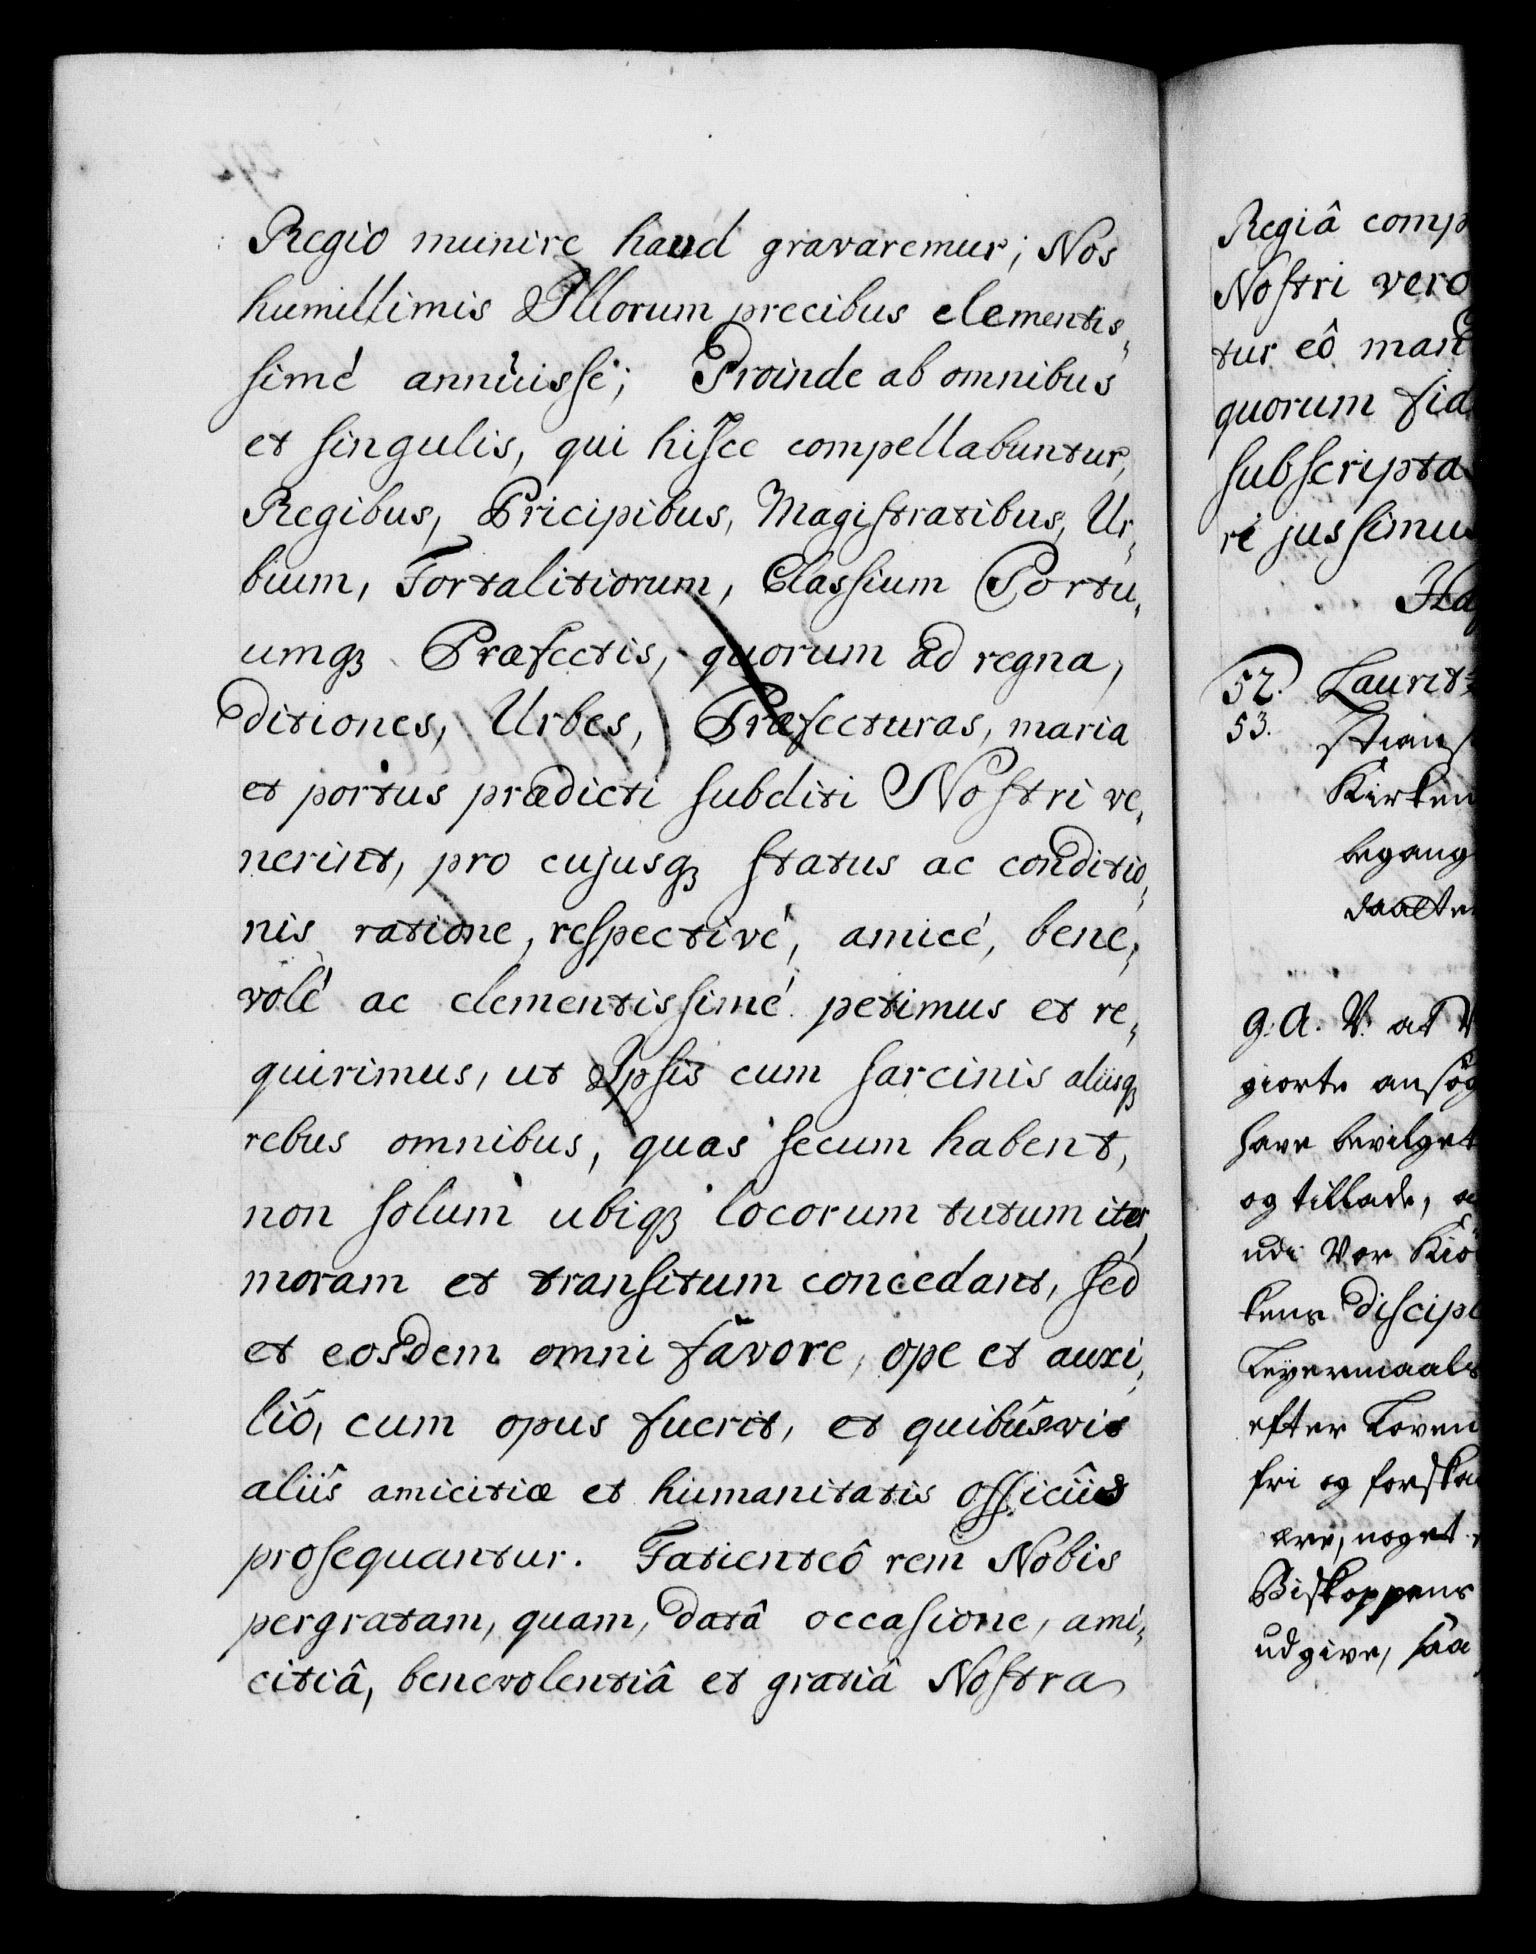 Regio munire haud gravaremur; Nos
humillimis Illorum precibus clementis„
simé annuisse; Proinde ab omnibus
et singulis, qui hisce compellabuntur,
Regibus, Pricipibus, Magistratibus, Ur„
bium, Fortalitiorum, Classium Portu„
umqꝫ Præfectis, quorum ad regna,
ditiones, Urbes, Præfecturas, maria
et portus prædicti subditi Nostri ve„
nerint, pro cujusqꝫ status ac conditio„
nis ratione, respectivé, amicé, bene„
volé ac clementissimé petimus et re„
quirimus, ut Ipsis cum sarcinis aliisqꝫ
rebus omnibus, quas secum habent,
non solum ubiqꝫ locorum tutum iter,
moram et transitum concedant, sed
et eosdem omni favore, ope et auxi„
liô, cum opus fuerit, et quibusvis
aliis amicitiæ et humanitatis officiis
prosequantur. Fatienteô rem Nobis
pergratam, quam, datâ occasione, ami„
citiâ, benevolentiâ et gratiâ Nostra
Regiâ comp
Nostri vero
tur eô mand
quorum fid
subscripta
ri jussimus
Haf
52. Laurit
53. stians
Kirken
begang
daatter
G. A. V. at V
giorte ansøg
have bevilget
og tillade, a
udi Vor Kiö
kens Discipl
Leyermaals
efter Loven
fri og forska
ære, noget
Biskoppens
udgive, saa